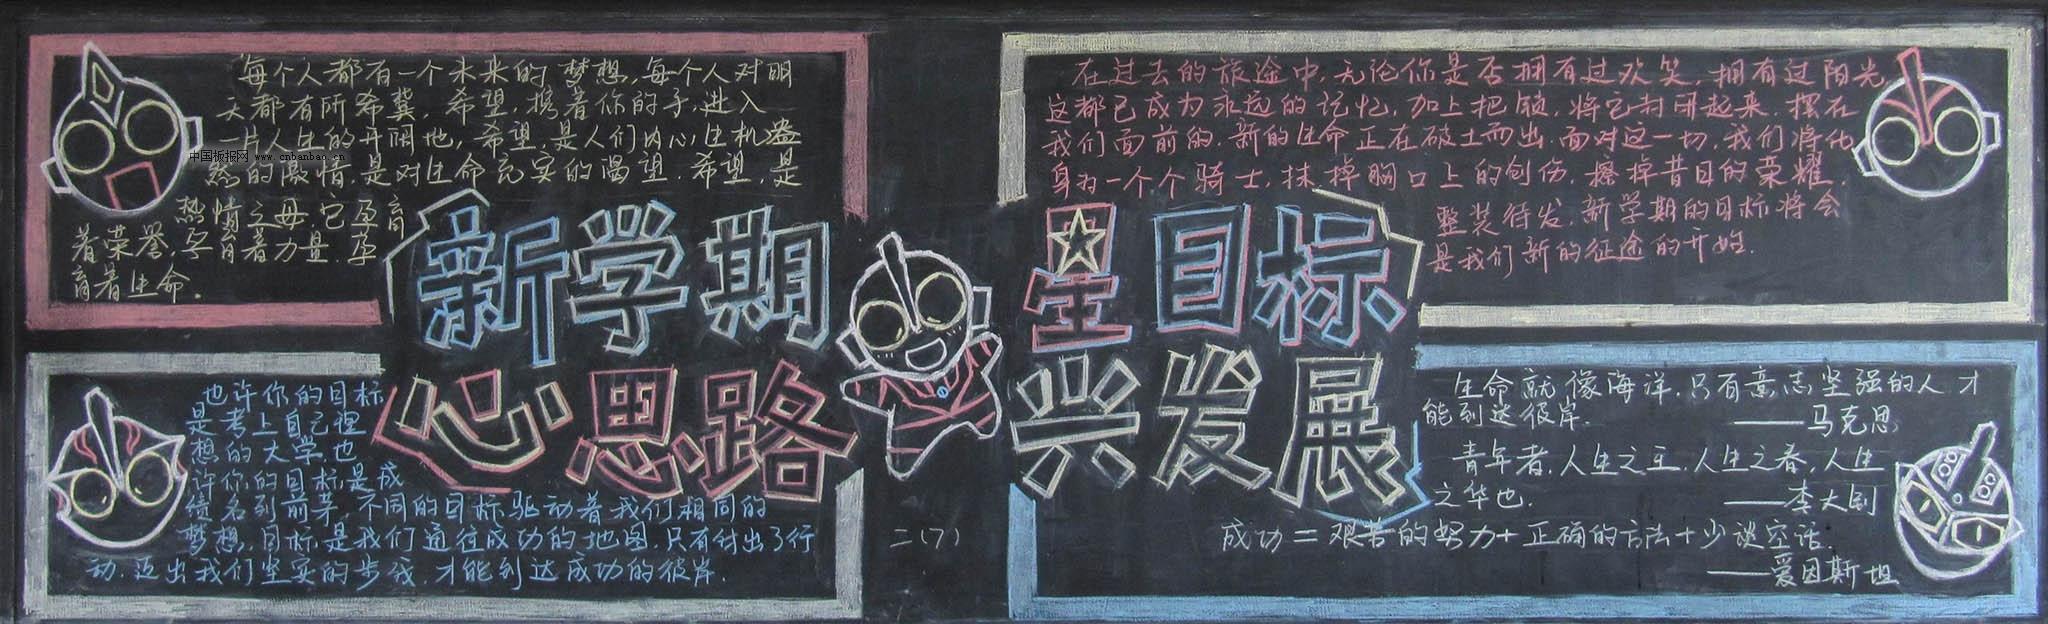 每个人都有一个未来的梦想,每个人对明
天都有所希冀,希望,携着你的手,进入
一片人生的开阔地,希望,是人们内心生机盎
然的激情,是对生命充实的渴望.希望,是
热情之母,它孕育
着荣誉,孕育着力量.孕
育着生命.
中国板报网 www.cnbanbao.cn
在过去的旅途中,无论你是否拥有过欢笑,拥有过阳光
这都已成为永远的记忆,加上把锁,将它封闭起来.摆在
我们面前的,新的生命正在破土而出.面对这一切,我们将化
身为一个个骑士,抹掉胸口上的创伤,擦掉昔日的荣耀,
整装待发,新学期的目标将会
是我们新的征途的开始.
新学期 星目标
心思路 兴发展
也许你的目标
是考上自己理
想的大学,也
许你的目标是成
绩名列前茅,不同的目标驱动着我们相同的
梦想,目标是我们通往成功的地图,只有付出了行
动,迈出我们坚实的步伐,才能到达成功的彼岸.
二(7)
生命就像海洋,只有意志坚强的人才
能到达彼岸.
——马克思
青年者,人生之王,人生之春,人生
之华也.
——李大钊
成功=艰苦的努力+正确的方法+少谈空话.
——爱因斯坦